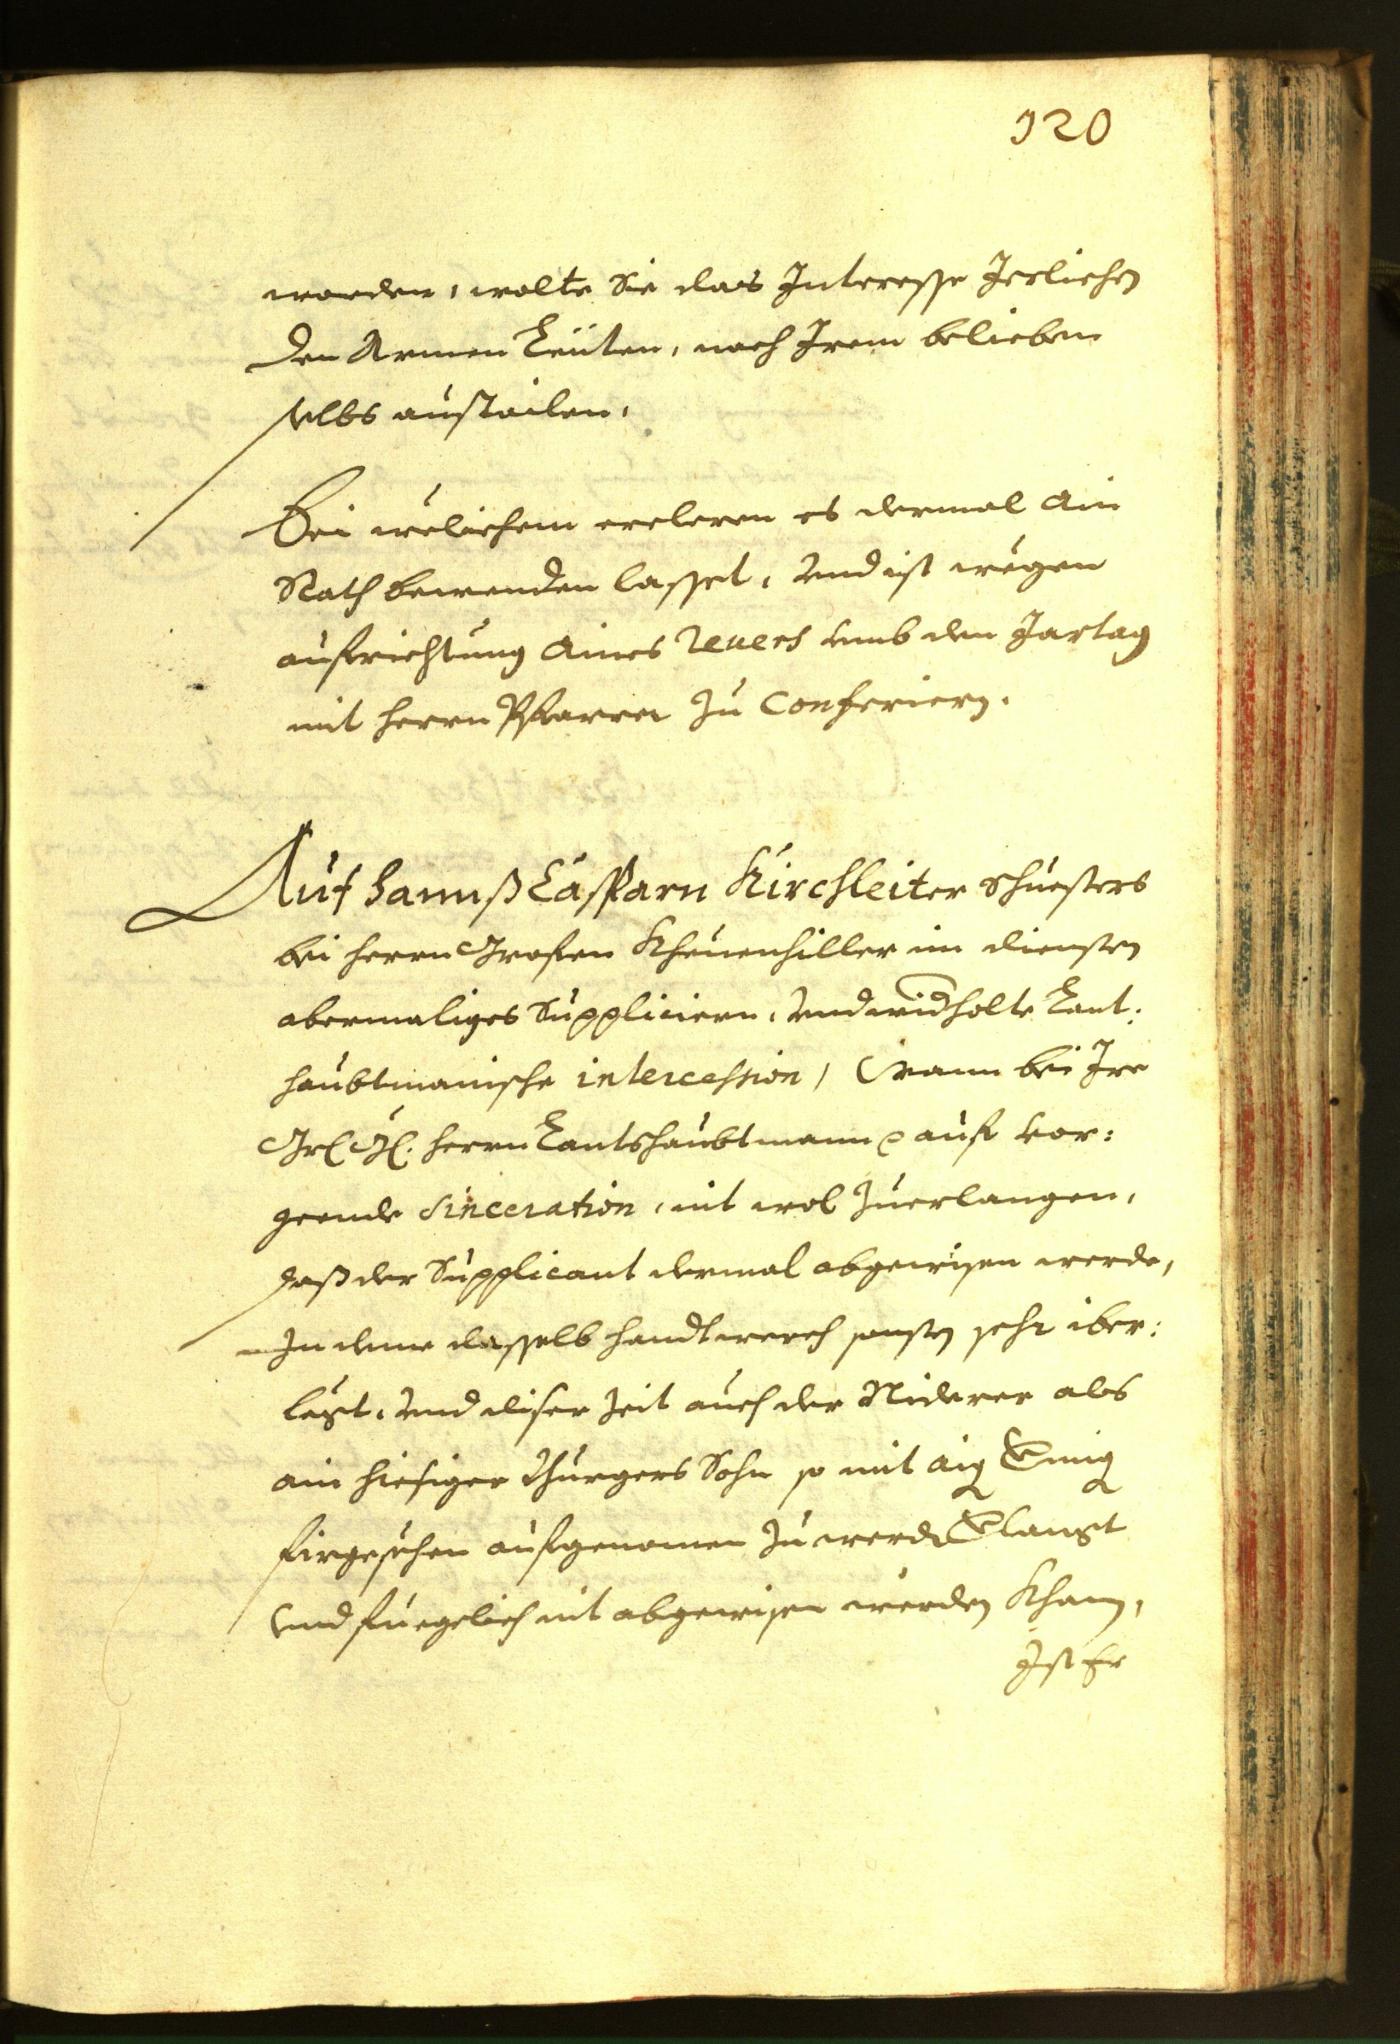 120
worden, wolte Sie das Interesse Jerlichen
den Armen Leüten, nach Irem belieben
selbs austailen.
Bei welichem ercleren es dermal Ain
Rath bewenden lasset, Und ist wegen
aufrichtung Aines Revers umb den Jartag
mit herrn Pfarrer zu Conferiern.
Auf Hannß Casparn Kirchleiter Schuesters
bei herrn Grafen Kheuenhiller in diensten
abermaliges Suppliciern, Und widholte Lant:
haubtmanische intercession, Wann bei Ire
Herrn Lantshaubtmann auf vor:
geende sinceration, nit wol zuerlangen,
daß der Supplicant dermal abgewisen werde,
In deme dasselb handtwerch sonsten sehr iber:
legt, Und diser zeit auch der Niderer als
ain hiesiger Burgers Sohn so mit
firgesehen aufgenomen zu werden Verlangt
und fuegelich nit abgewisen werden Khan,
Ist Er